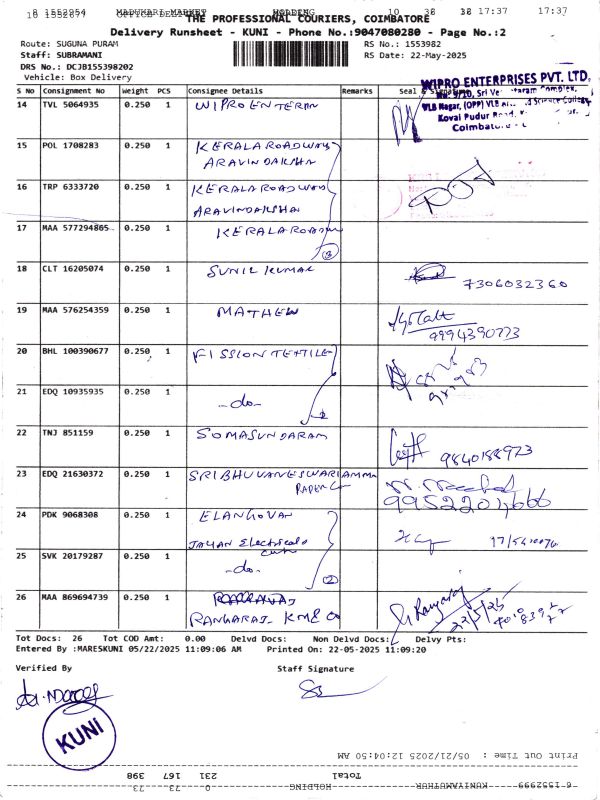 THE PROFESSIONAL COURIERS, COIMBATORE
17:37
Delivery Runsheet - KUNI - Phone No.:9047080280 - Page No.:2
Route: SUGUNA PURAM
RS No.: 1553982
Staff: SUBRAMANI
RS Date: 22-May-2025
DRS No.: DCJB155398202
Vehicle: Box Delivery
S No Consignment No Weight PCS Consignee Details Remarks Seal &
WIPRO ENTERPRISES PVT. LTD.
VLB Nagar, (OPP) VLB Science College
Kovai Pudur Road,
14 TVL 5064935 0.250 1 WIPRO ENTERAN
15 POL 1708283 0.250 1 KERALA ROADWAYS
ARAVINDAKSHA
16 TRP 6333720 0.250 1 KERALA ROADWAY
ARAVINDAKSHA
17 MAA 577294865 0.250 1 KERALA ROADW
3
18 CLT 16205074 0.250 1 SUNIL KUMAR
7306032360
19 MAA 576254359 0.250 1 MATHEW
9994390773
20 BHL 100390677 0.250 1 FISSION TEXTILE
21 EDQ 10935935 0.250 1 -do-
2
22 TNJ 851159 0.250 1 SOMASUNDARAM
9840188973
23 EDQ 21630372 0.250 1 SRI BHUVANESWARI AMMA
PAPER
24 PDK 9068308 0.250 1 ELANGOVAN
Electricals
25 SVK 20179287 0.250 1 -do-
2
26 MAA 869694739 0.250 1
RANGARAJ KMCO
22/5/25
Tot Docs: 26 Tot COD Amt: 0.00 Delvd Docs: Non Delvd Docs: Delvy Pts:
Entered By :MARESKUNI 05/22/2025 11:09:06 AM Printed On: 22-05-2025 11:09:20
Verified By Staff Signature
KUNI
Print Out Time : 05/21/2025 12:04:50 AM
Total 231 167 398
6 1552999 KUNIYAMUTHUR HOLDING 0 73 73